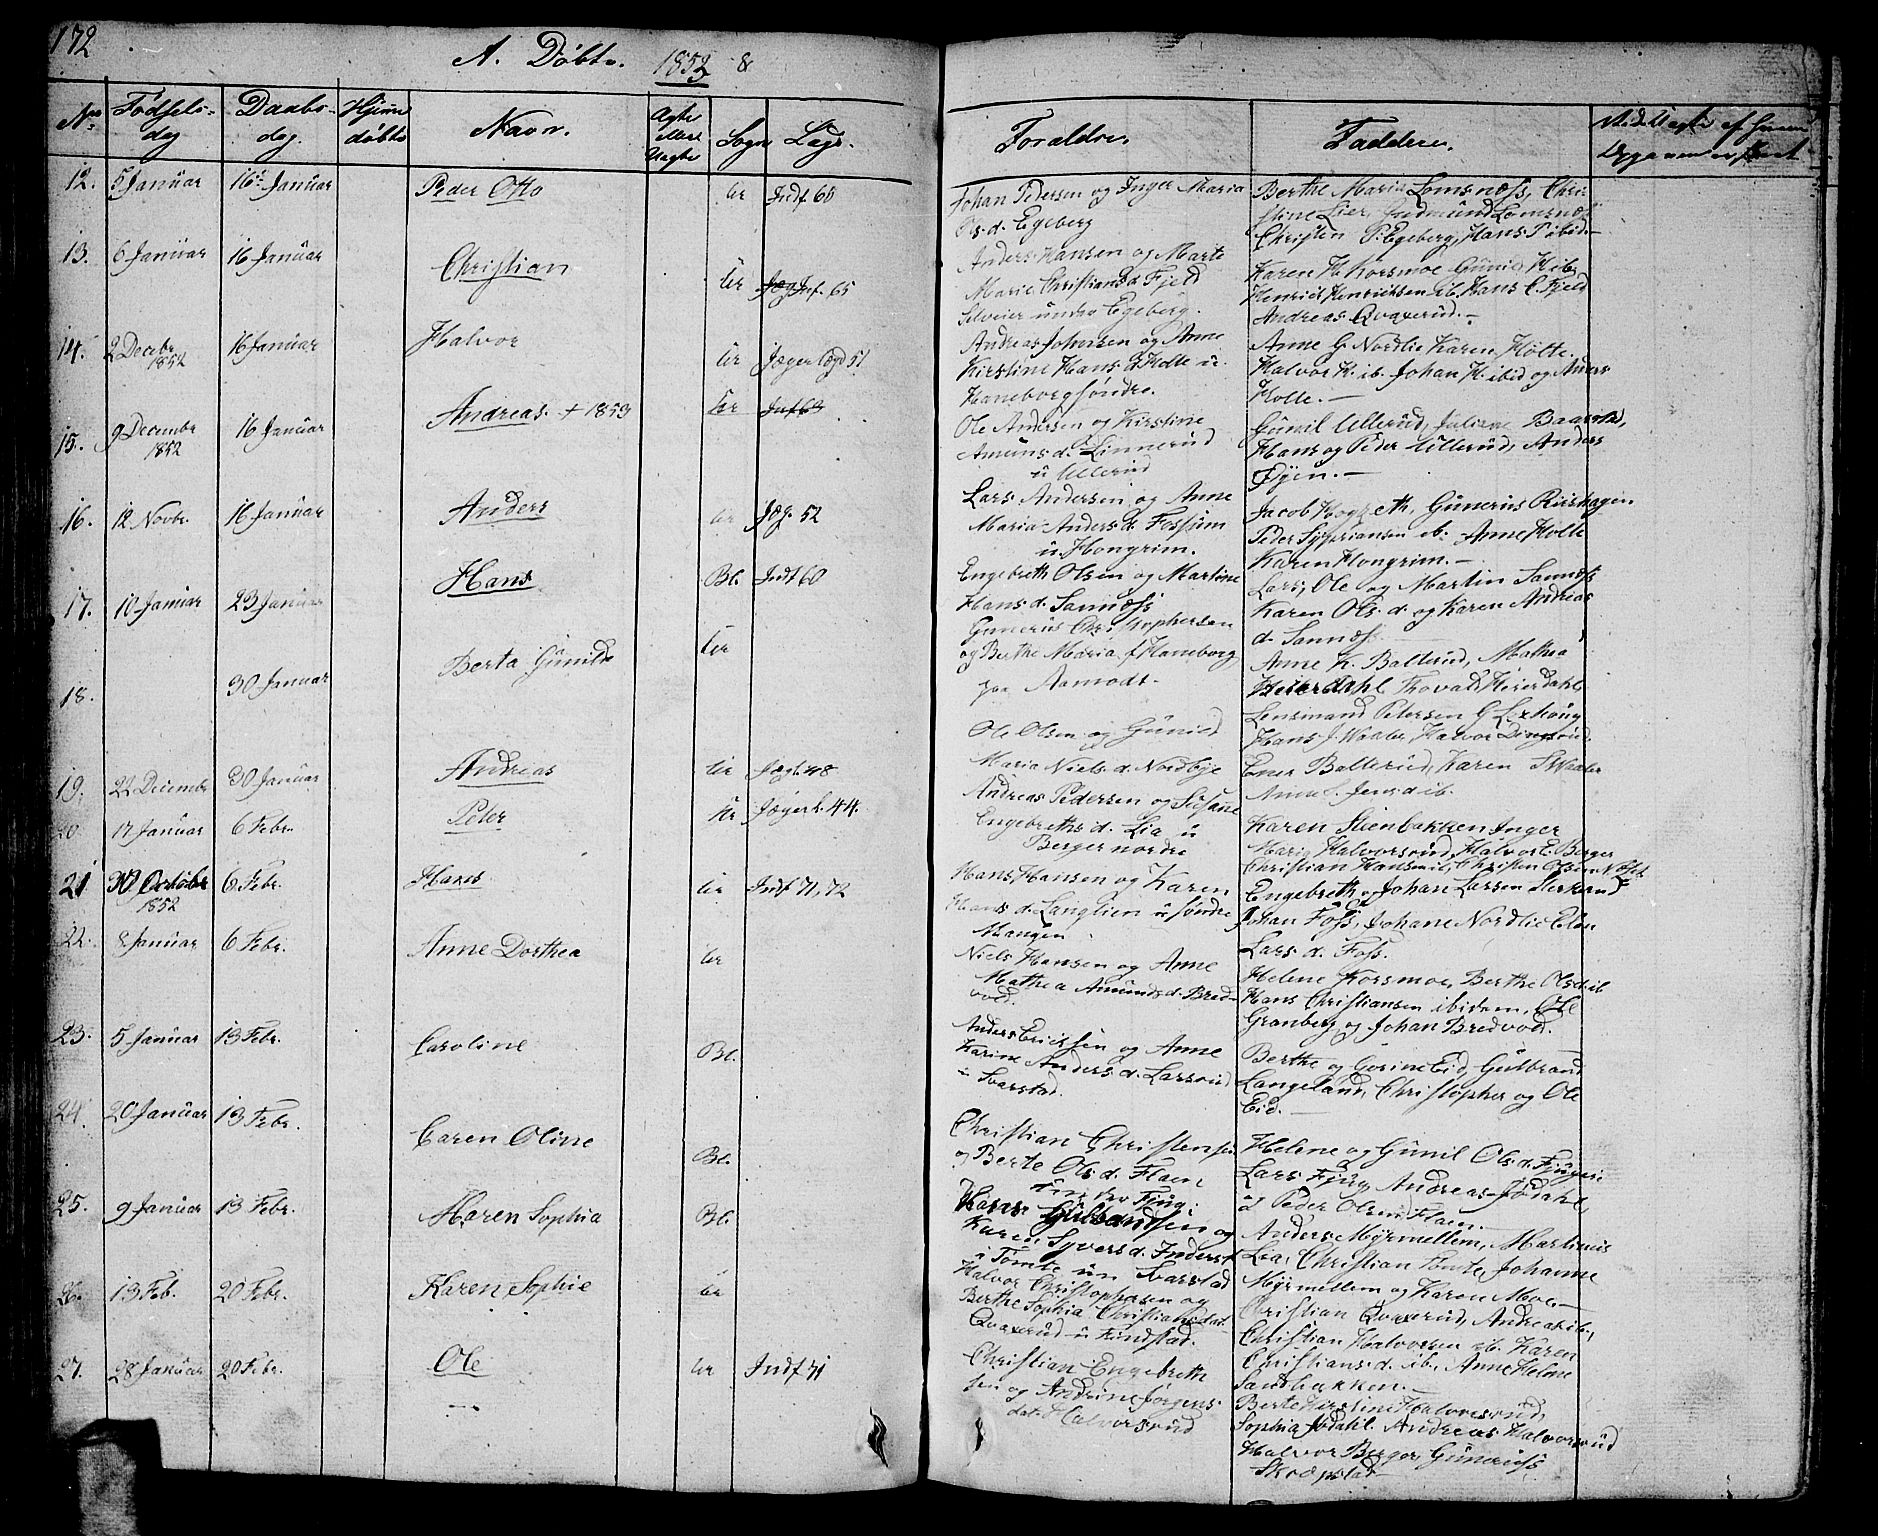 172
A. Döbte. 1853 &
No Födsels-dag Daabs-dag. Hjemmedöbte Navn. Ægte eller Uægte Sogn Lægd. Foraldre. Faddere.
12. 5 Januar 16 Januar Peder Otto Ur Indf 65
Johan Pedersen og Inger Maria
Ols. d. Egeberg
Berthe Marie Lomsnæss, Chri-
stine Lier, Gudmund Lomsnæss
Christen P. Egeberg, Hans P. ibid.
13. 6 Januar 16 Januar Christian Ur Inf. 65
Anders Hansen og Marte
Marie Christians d. Fjeld
Selveier under Egeberg.
Karen H. Korsmoe Gunild H. ib.
Henrich Henrichsen ib. Hans C. Fjeld
Andreas Qvaxerud.
14. 2 Decebr 1852 16 Januar Halvor Ur Jæger Lægd 51
Andreas Johnsen og Anne
Kirstine Hans d. Holte u.
Haneborg søndre.
Anne G. Nordlie Karen Holte
Halvor K. ib. Johan H. ibid og Anders
Holte.
15. 9 Decembr 1852 16 Januar Andreas. + 1853 Ur
Ole Andersen og Kirstine
Amunds d. Linnerud
u Ullerud
Gunil Ullerud, Juliane
Hans og Peder Ullerud, Anders
Øyen.
16. 12 Novbr. 16 Januar Anders Ur Jæg. 52
Lars Andersen og Anne
Maria Anders d. Fossum
u. Hongrim.
Jacob Gunerus
Peder Sypriansen ib. Anne Holte
Karen Hongrim.
17. 10 Januar 23 Januar Hans Bl. Indf 60
Engebreth Olsen og Martine
Hans d. Sannæss
Lars, Ole og Martin Sannæss
Karen Ols. d. og Karen Andreas
d. Sannæss
18. 30 Januar Berta Gunild Ur
Gunerius Christophersen
og Berthe Maria f. Haneborg
paa Aamodt.
Anne K. Balterud, Mathea
Heierdahl Thovald Heierdahl
Lensmand Petersen G.
Hans J. Waaler, Halvor Dingsrud.
19. 22 Decembr 30 Januar Andreas Ur Jægl. 48
Ole Olsen og Gunild
Maria Niels. d. Nordbye
Ener Balterud, Karen Waaler
Anne Jens d. ib.
20 17 Januar 6 Febr. Peter Ur Jægerl. 44.
Andreas Pedersen og Susanne
Engebreths d. Lia u
Berger nordre
Karen Stenbakken Inger
Marie Halvorsrud, Halvor E. Berger
21 30 October 1852 6 Febr. Hans Ur Indf 71, 72
Hans Hansen og Karen
Hans d. Langlien u søndre
Mangen
Christian Hansen ib. Christen Olsen
Engebreth og Johan Larsen
22. 8 Januar 6 Febr. Anne Dorthea Ur
Niels Hansen og Anne
Mathea Amunds. d. Bred-
vod.
Johan Foss, Johane Nordlie
Lars. d. Foss.
Helene Korsmoe, Berthe Ols d. ib
Hans Christiansen ibidem, Ole
Granberg og Johan Bredvod.
23. 5 Januar 13 Febr. Caroline Bl.
Anders Erichsen og Anne
Karine Anders. d. Larsrud
u Svarstad.
Berthe og Gorine Eid, Gulbrand
Langeland, Christopher og Ole
Eid.
24. 20 Januar 13 Febr. Caren Oline Bl.
Christian Christensen
og Berte Ols. d. Flaen
under Fjug.
Helene og Gunil Ols. d. Fjugeri
Lars Fjug, Andreas Jødahl,
og Peder Olsen Flaen.
25. 9 Januar 13 Febr. Maren Sophia Bl.
Hans Gulbrandsen og
Karen Syvers d.
i Tomte un Svarstad
Anders Myrmellem, Martinus
Lia, Christian Tomte, Johanne
Myrmellem og Karen Moe.
26. 13 Feb. 20 Febr. Karen Sophie Ur
Halvor Christophersen og
Berthe Sophia Christians dat.
Qvaxerud u Fundstad.
Christian Qvaxerud, Andreas ib.,
Christian Halvorsen ib. Karen
Christians d. ib. Anne Helene
Sandbakken.
27. 28 Januar 20 Febr. Ole Ur Indf 71
Christian Engebreth-
sen og Andrine Jørgens-
dat. Halvorsrud
Berte Kirstine Halvorsrud,
Sophia Jødahl. Andreas Halvorsrud
Halvor Berger, Gunerius